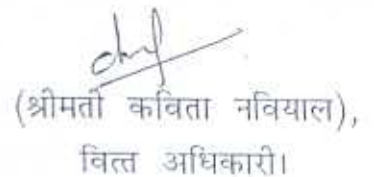 (श्रीमती कविता नवियाल),
वित्त अधिकारी।